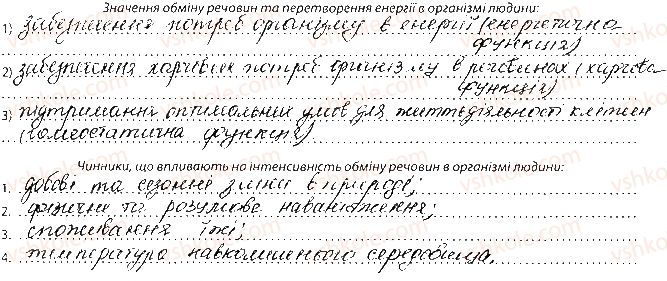 Значення обміну речовин та перетворення енергії в організмі людини:
1) забезпечення потреб організму в енергії (енергетична
функція)
2) забезпечення харчових потреб організму в речовинах (харчова
функція)
3) підтримання оптимальних умов для життєдіяльності клітин
(гомеостатична функція)
Чинники, що впливають на інтенсивність обміну речовин в організмі людини:
1. добові та сезонні зміни в природі;
2. фізичне та розумове навантаження;
3. споживання їжі;
4. температура навколишнього середовища.